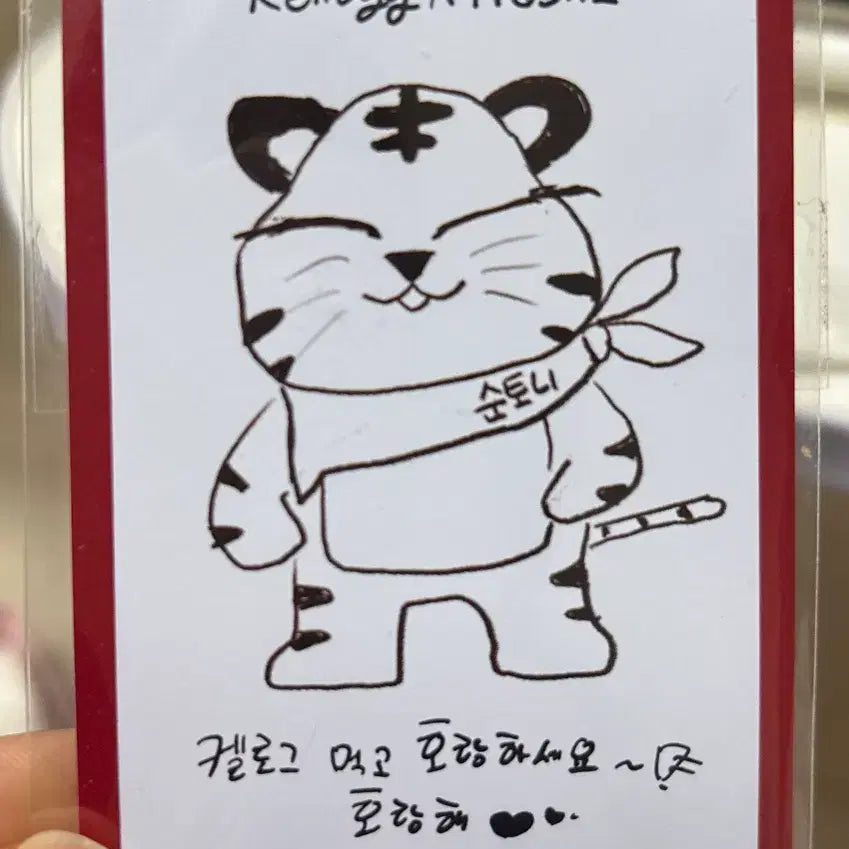 순토니
켈로그 먹고 호랑하세요 ~
호랑해 ♥♥.